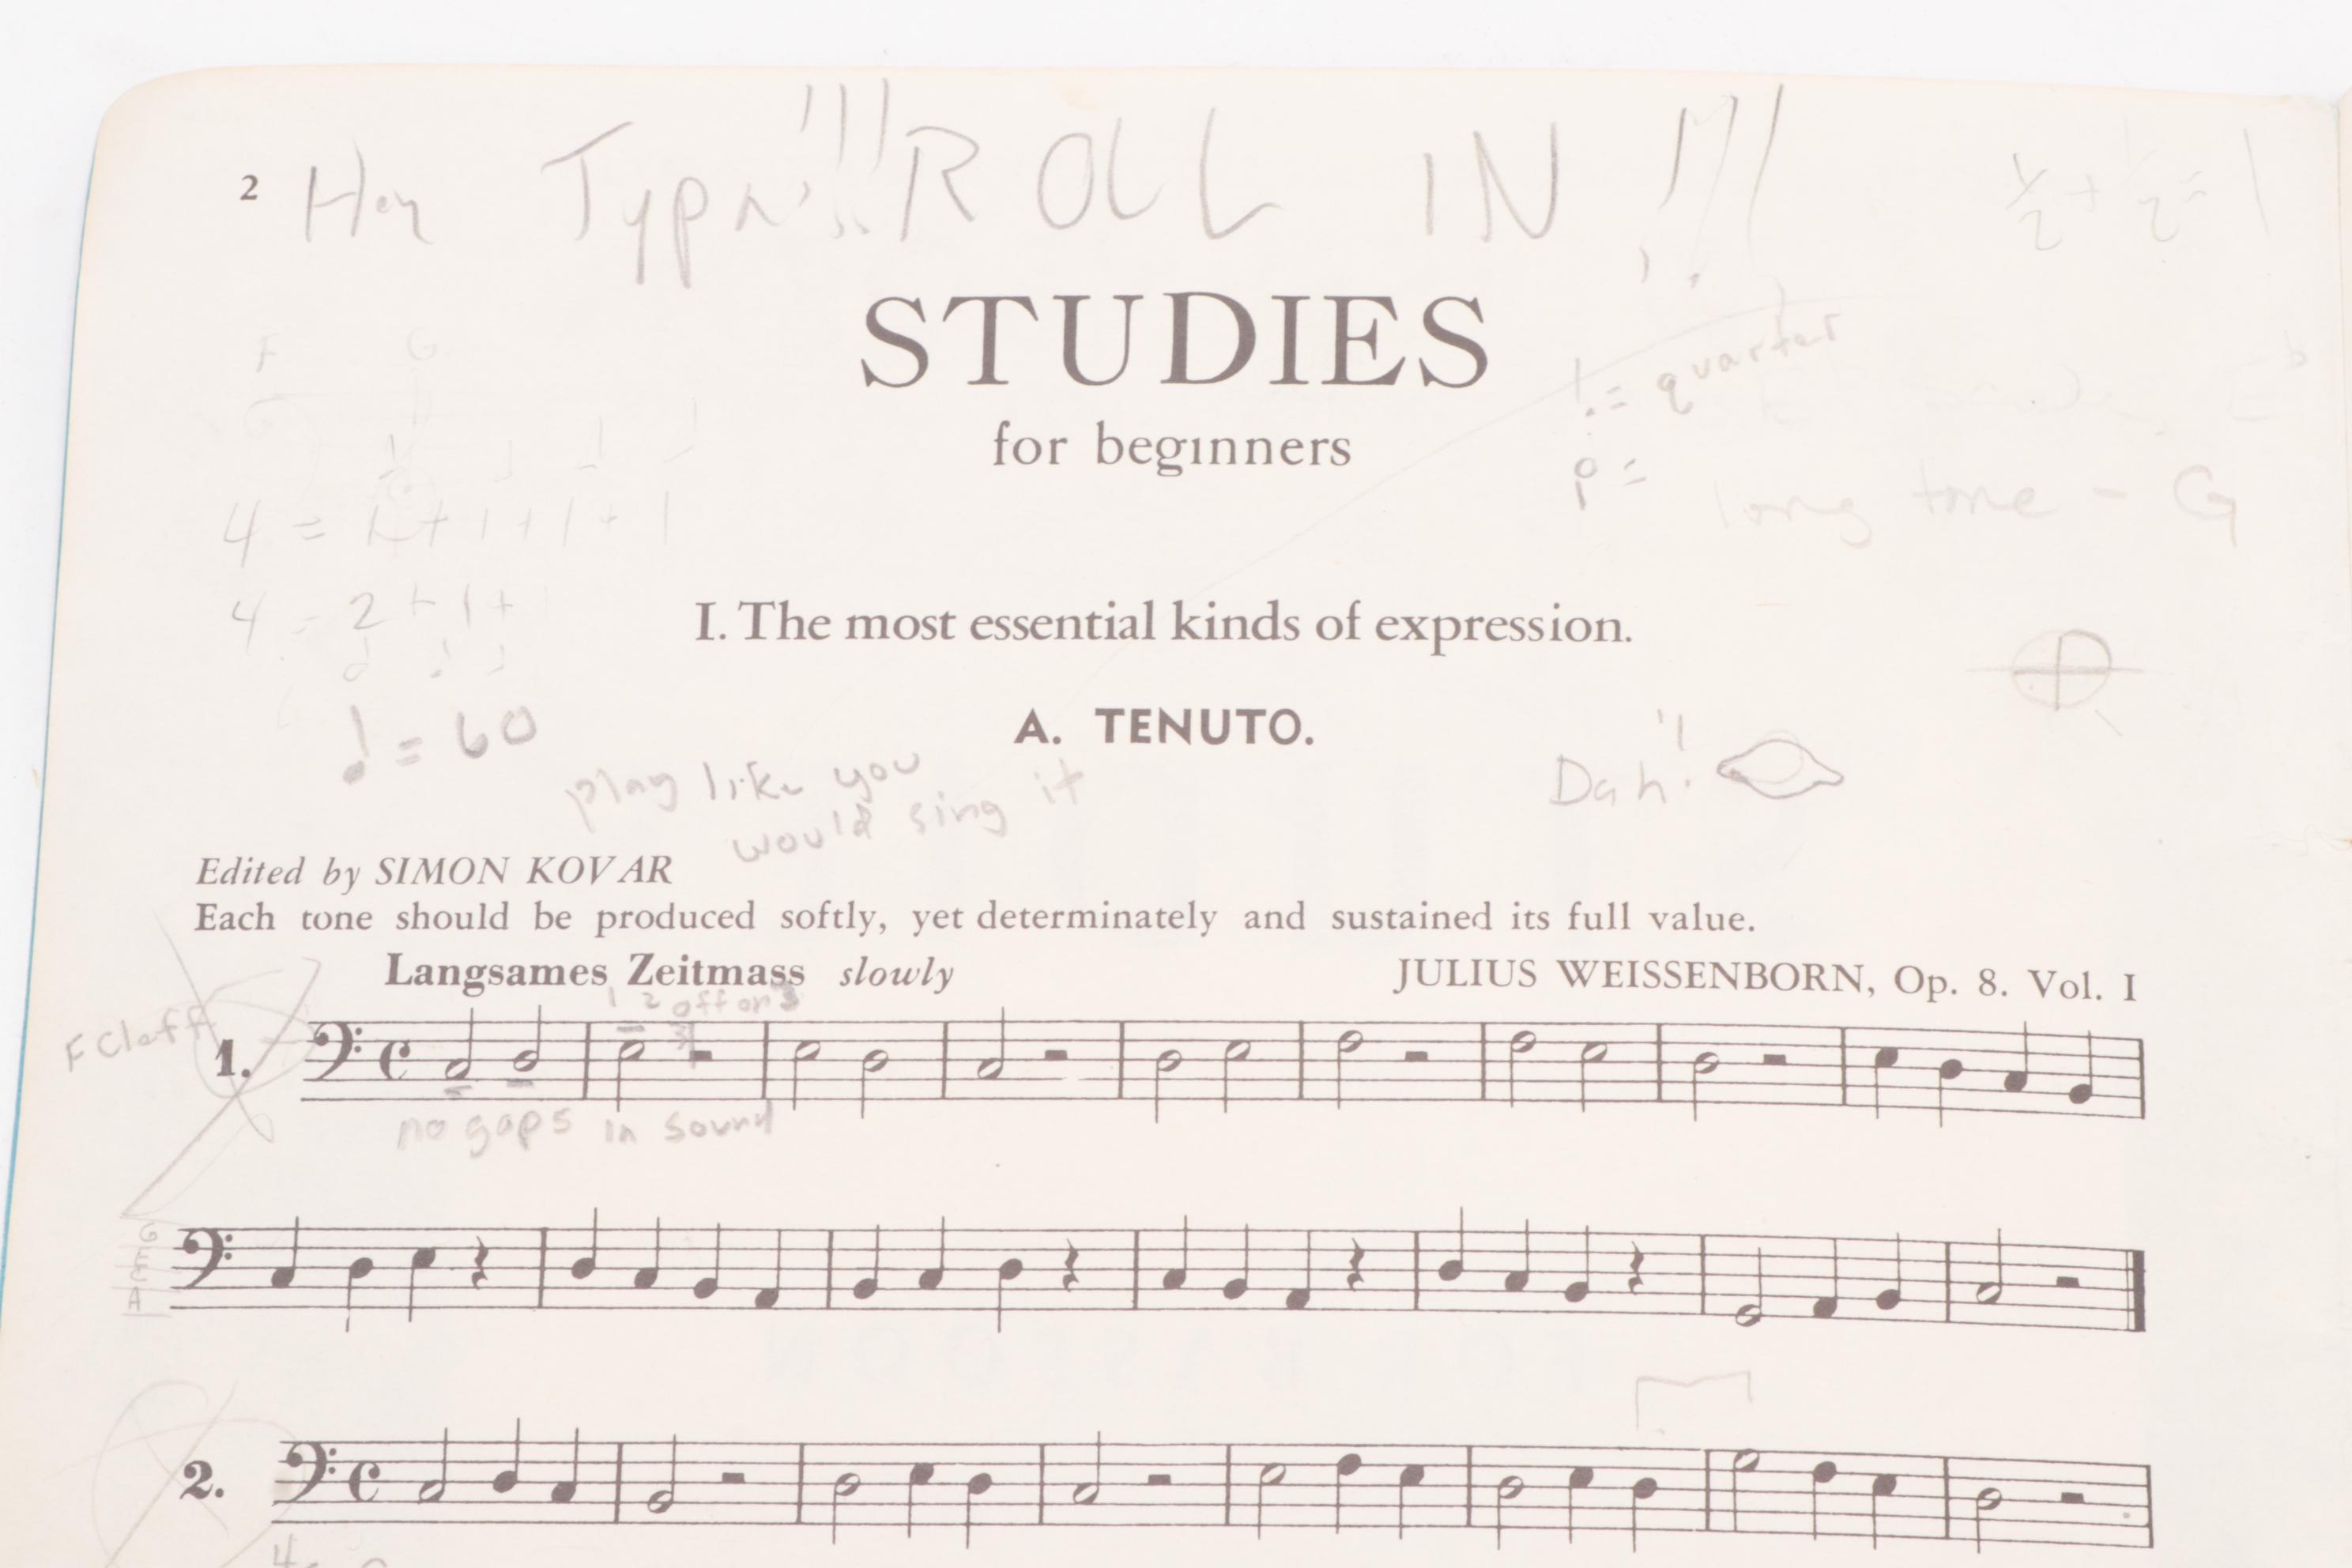 2
ROLL IN !!!
1/2 + 1/2 = 1
STUDIES
F G
♩ = quarter
for beginners
long tone - G
4 = 1 + 1 + 1 + 1
4 = 2 + 1 +
I. The most essential kinds of expression.
♩ = 60
A. TENUTO.
play like you
would sing it
Dah!
Edited by SIMON KOVAR
Each tone should be produced softly, yet determinately and sustained its full value.
Langsames Zeitmass slowly
JULIUS WEISSENBORN, Op. 8. Vol. I
1 2 off on 3
F Cleff
1.
no gaps in sound
G
E
C
A
2.